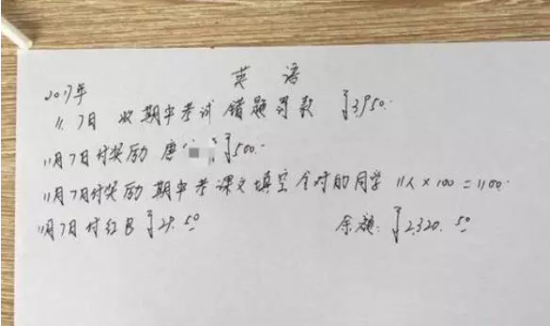 英 语
2017年
11.7日 收期中考试错题罚款 ¥3950.
11月7日付奖励 唐 ¥500.
11月7日付奖励 期中考课文填空全对的同学 11人×100=1100.
11月7日付红B ¥29.50 余额:¥2320.50